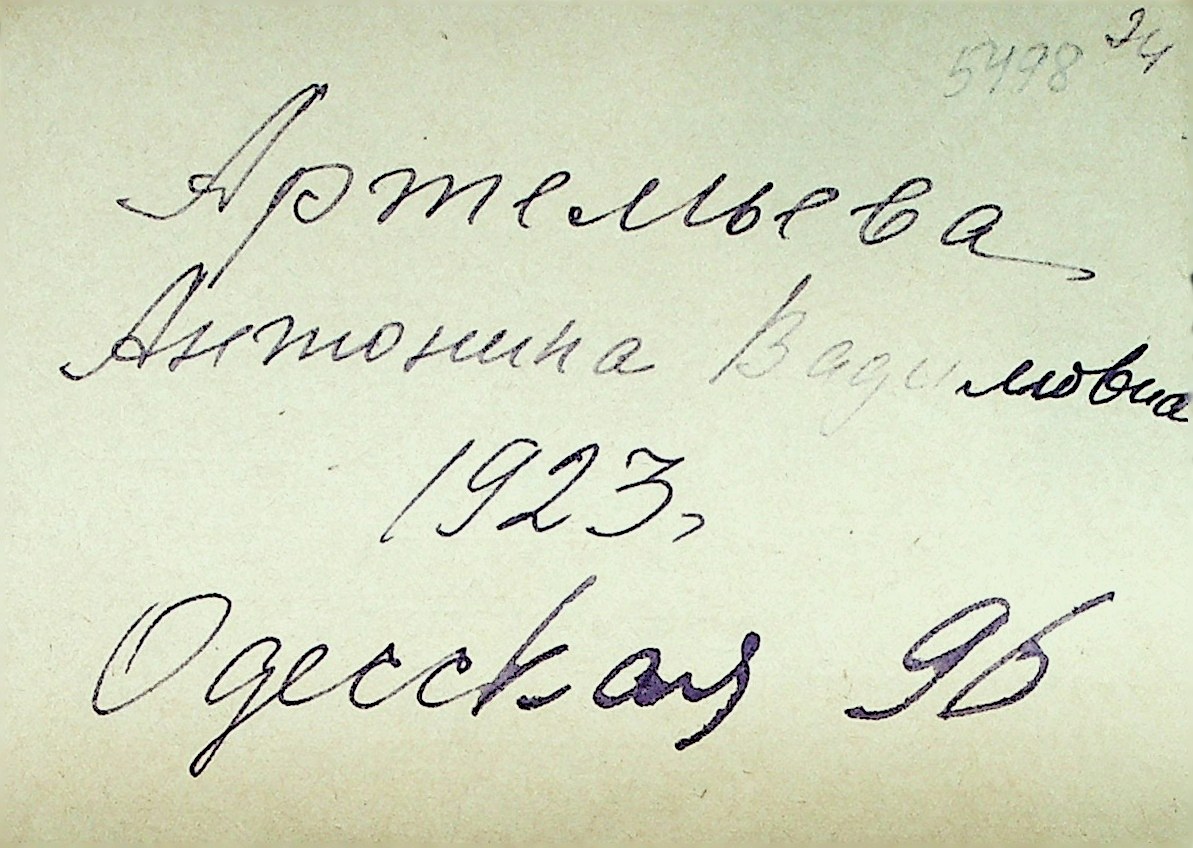 5498 24
Артемьева
Антонина Вадимовна
1923,
Одесская 96